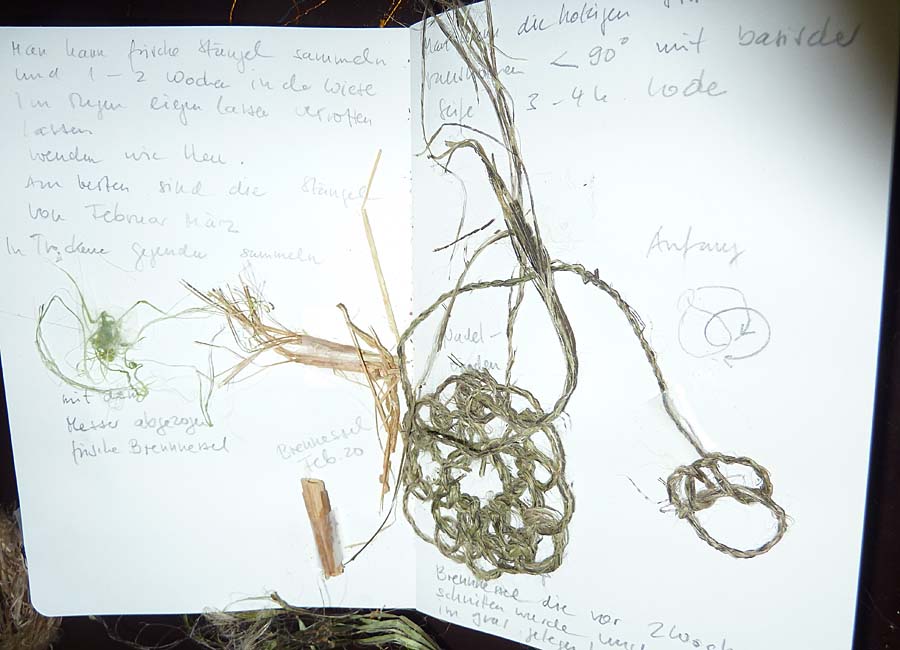 Man kann frische Stängel sammeln
und 1-2 Wochen in der Wiese
im Regen liegen lassen verrotten
lassen
wenden wie Heu.
Am besten sind die Stängel
von Februar März
In Trockene gegenden sammeln
mit dem
Messer abgezogen
frische Brennnessel
Brennnessel
Feb. 20
die holzigen
< 90° mit basischer
Seife 3-4 h
Anfang
Nadel-
Brennnessel die vor 2 Woch
schnitten wurde und
im gras gelegen